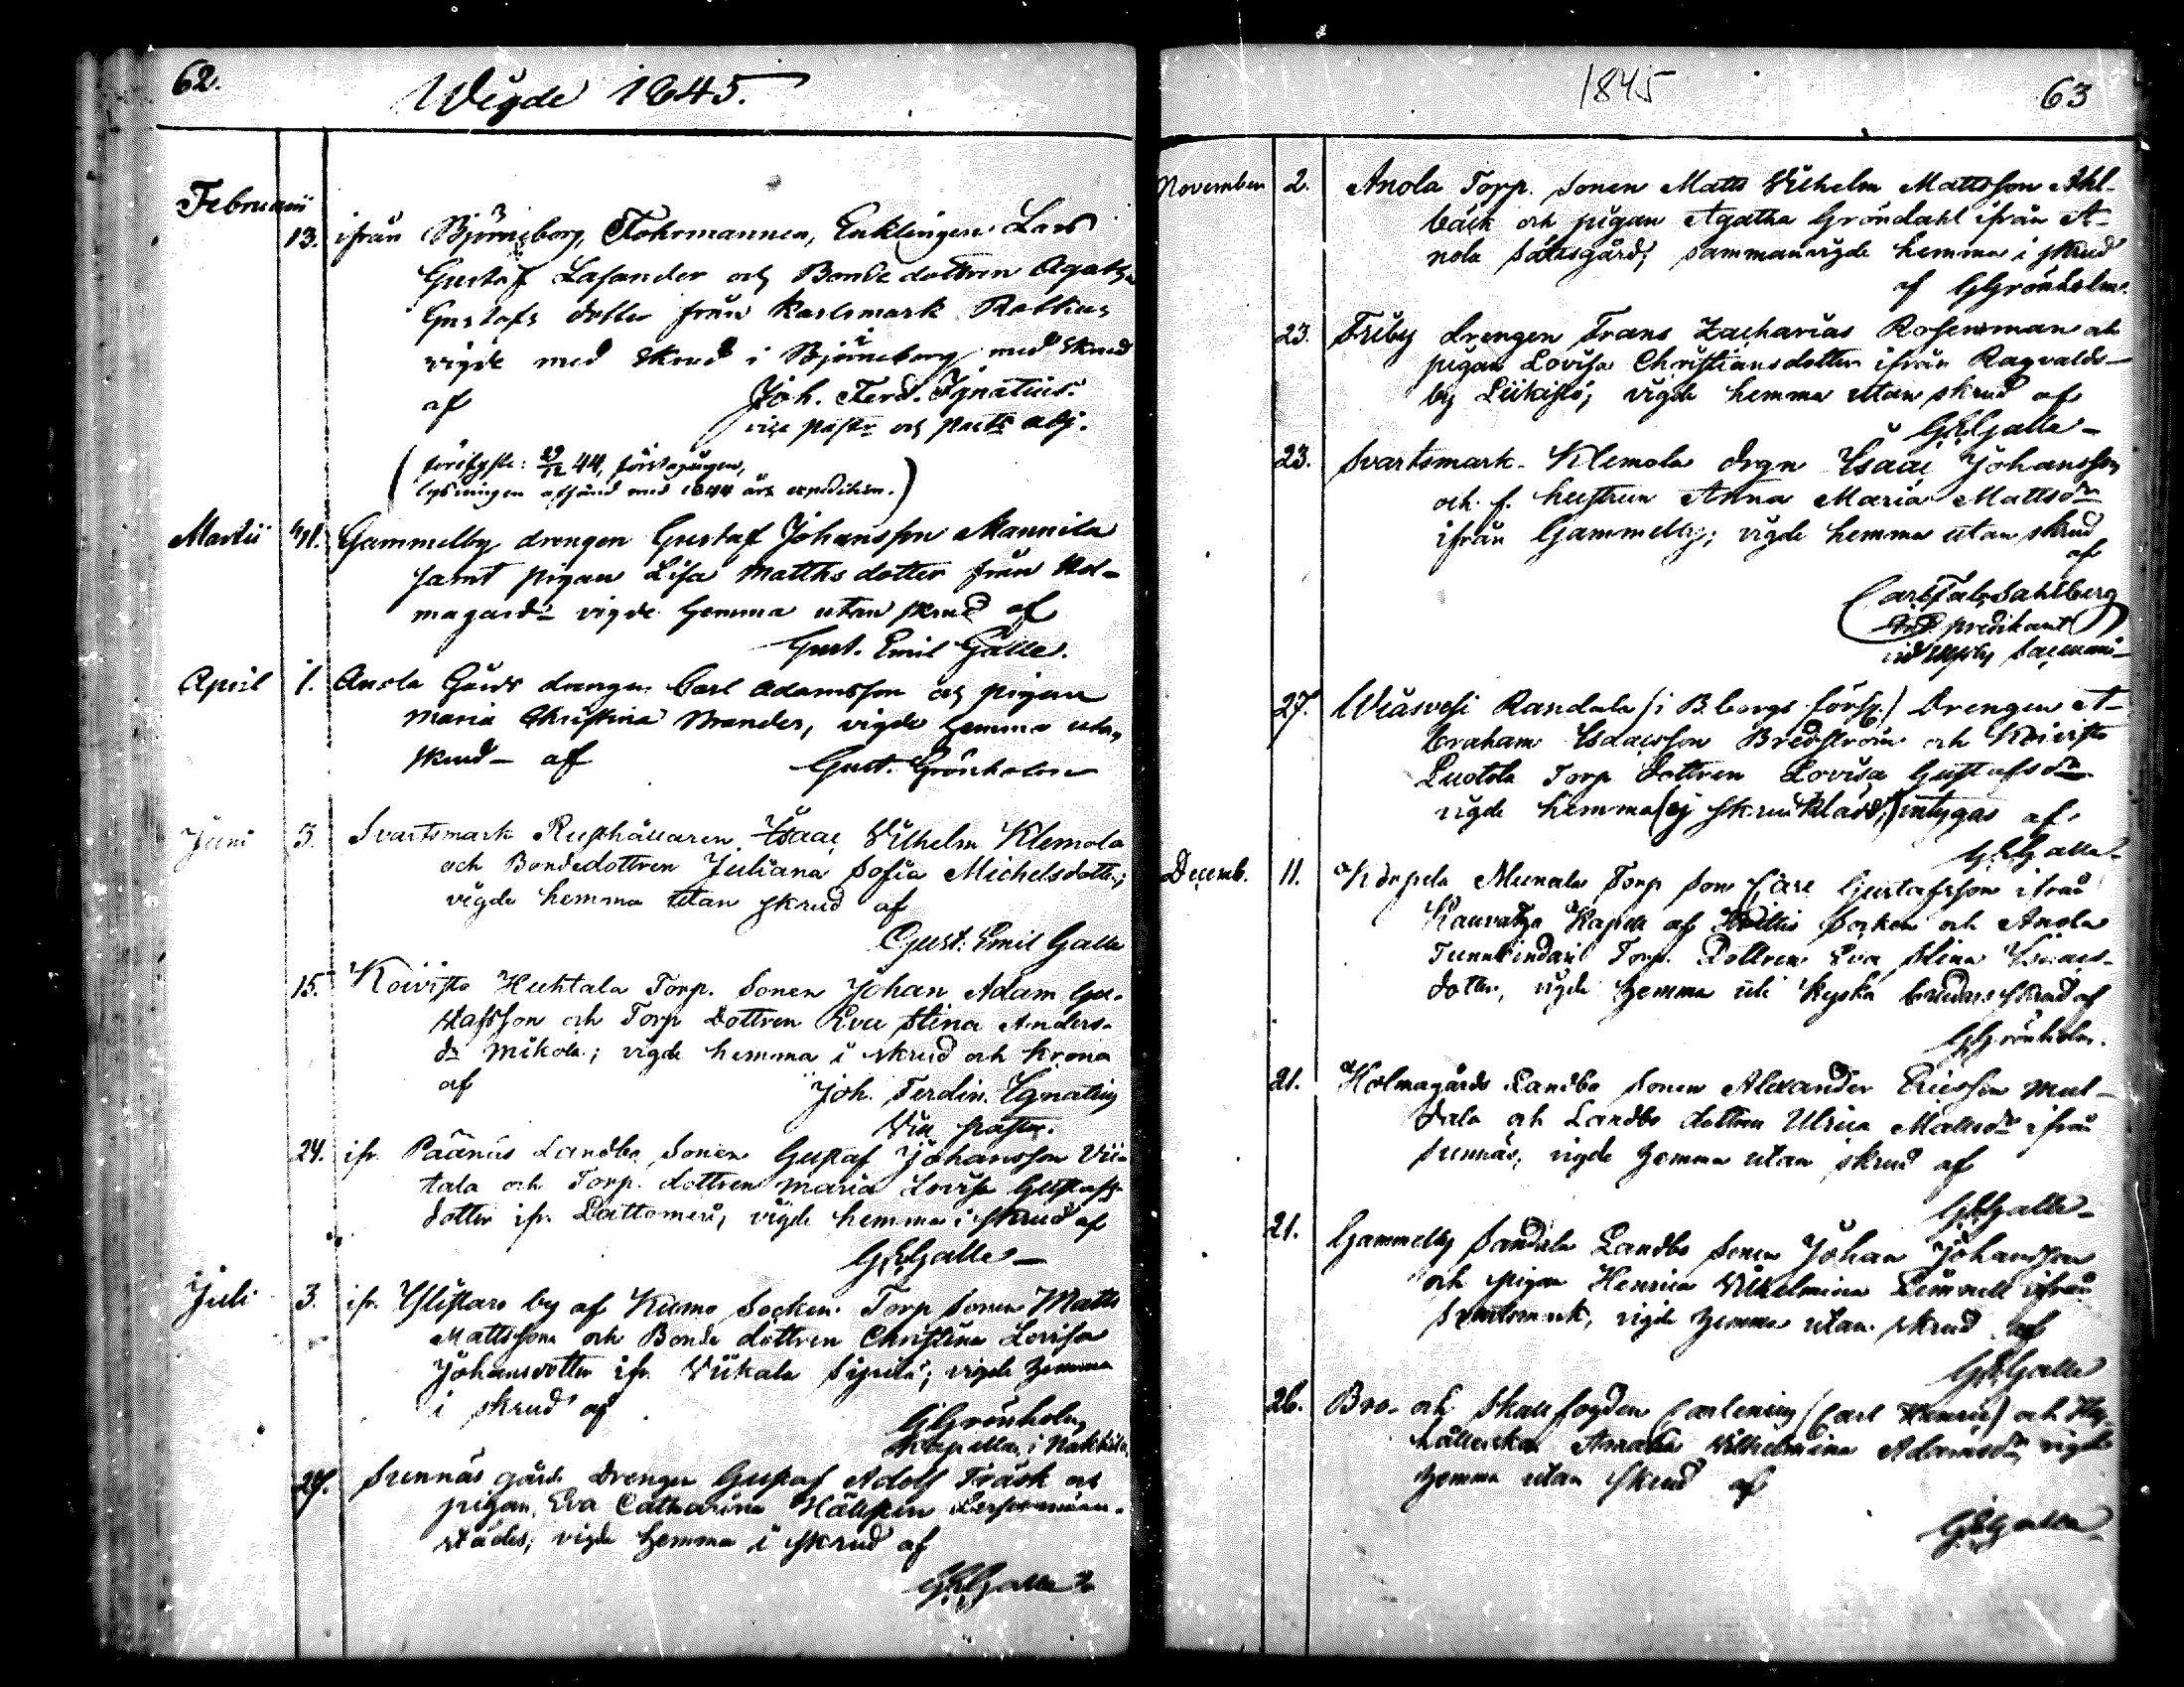 62.
Wigde 1845.
Februarii
13. ifrån Björneborg, Fohrmannen, Enklingen Lars
Gustaf Lasander och Bonde dottren Agatha
Gustafs dotter från Karlsmark Rottius
vigde med skrud i Björneborg med skrud
af Joh. Ferd. Ignatius.
vice pastor och past: adj.
(företedde: 29/12 44, förstagången,
lysningen afsänd med 1844 års expedition.)
Martii 11. Gammelby drengen Gustaf Johansson Mannila
samt pigan Lisa Matths dotter från Hol-
magård vigde hemma utan skrud af
Gust. Emil Galle.
April 1. Anola Gårds drengen Carl Adamsson och pigan
Maria Christina Strander, vigde hemma utan
skrud - af Gust. Grönholm
Juni 5. Svartsmark Rusthållaren Isaac Wilhelm Klemola
och Bondedottren Juliana Sofia Michelsdotter;
vigde hemma utan skrud af
Gust. Emil Galle
15. Koivisto Huhtala Torp. Sonen Johan Adam Gu-
stafsson och Torp Dottren Eva Stina Anders-
dr Mikola; vigde hemma i skrud och krona
af Joh. Ferdin. Ignatius
Vice pastor.
24. ifr. Päänäs Landbo Sonen Gustaf Johansson Vii-
tala och Torp. dottren Maria Lovisa Gustafs-
dotter ifr. Lattomeri, vigde hemma i skrud af
GEGalle -
Juli 3. ifr. Ylistaro by af Kumo Socken Torp Sonen Matts
Mattsson och Bonde dottren Christina Lovisa
Johansdotter ifr. Wiikala Sipilä; vigde hemma
i skrud af
GGrönholm,
Kapellan i Nakkila.
27. Sunnäs gårds Drengen Gustaf Adolf Träsk och
pigan, Eva Catharina Hällsten dersamma-
städes; vigde hemma i skrud af
GEGalle
1845
63
November 2. Anola Torp. Sonen Matts Wilhelm Mattsson Ahl-
bäck och pigan Agatha Gröndahl ifrån A-
nola Sätesgård; sammanvigde hemma i skrud
af GGrönholm.
23. Friby drengen Frans Zacharias Rosenman och
pigan Lovisa Christiansdotter ifrån Ragvalds-
by Liikistö; vigde hemma utan skrud af
GEGalle -
23. Svartsmark Klemola drgn Isaac Johansson
och f. hustrun Anna Maria Mattsdr
ifrån Gammelby; vigde hemma utan skrud
af
Carl Sahlberg
predikant
27. Wiäsvesi Randala (i B.borgs förs.) Drengen A-
braham Isaacsson Bredström och Koivisto
Luotola Torp Dottren Lovisa Gustafsdr
vigde hemma (ej skrudklädd,) intygas af
GEGalle
Decemb. 11. Korpela Munala Torp Son Carl Gustafsson ifrån
Kauvatsa Kapell af Socken och Anola
Tunnbindari Torp. Dottren Eva Stina Isaacs-
dotter, vigde hemma uti kyska brudars skrud af
GGrönholm.
21. Holmagårds Landbo Sonen Alexander Ericsson
och Landbo dottren Ulrica Mattsdr ifrån
Sunnäs; vigde hemma utan skrud af
GEGalle -
21. Gammelby Sandala Landbo Sonen Johan Johansson
och pigan Henrica Wilhelmina ifrån
Svartsmark, vigde hemma utan skrud af
GEGalle
26. Bro- och Skallfogden Carlenius (Carl Henric) och
Wilhelmina Adamsdr, vigde
hemma utan skrud af
GEGalle